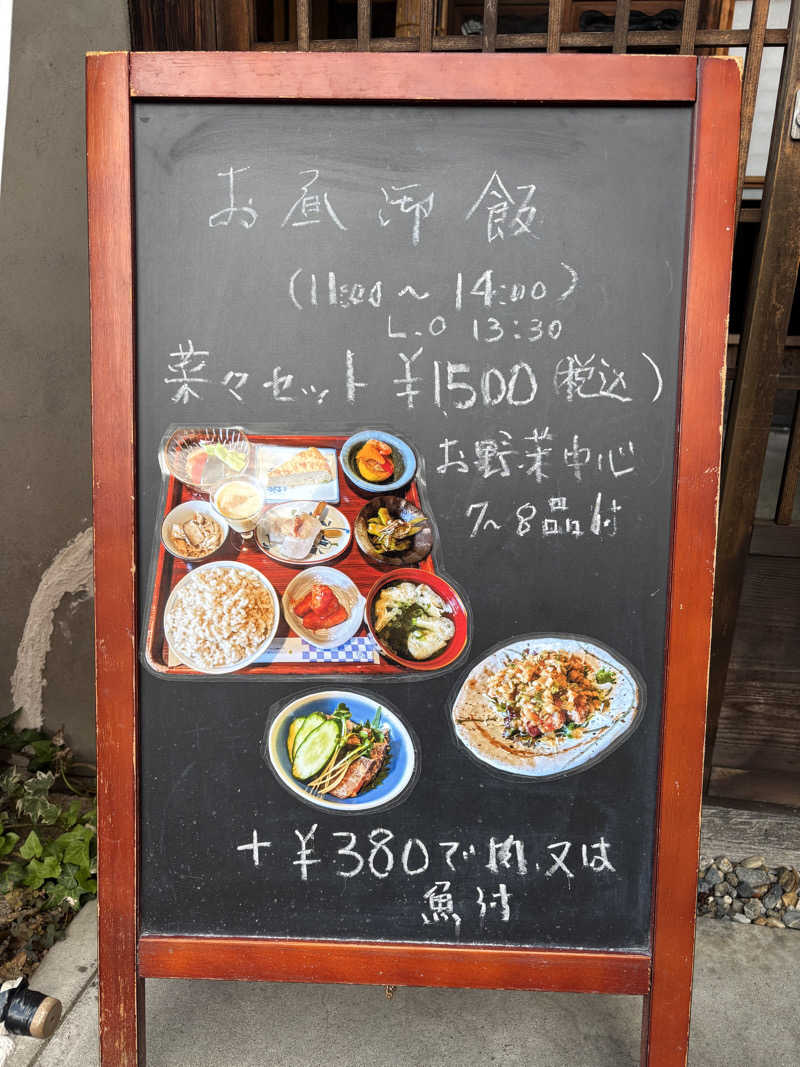 お昼御飯
(11:00～14:00)
L.O 13:30
菜々セット ¥1500(税込)
お野菜中心
7〜8品付
+¥380で肉、又は
魚付